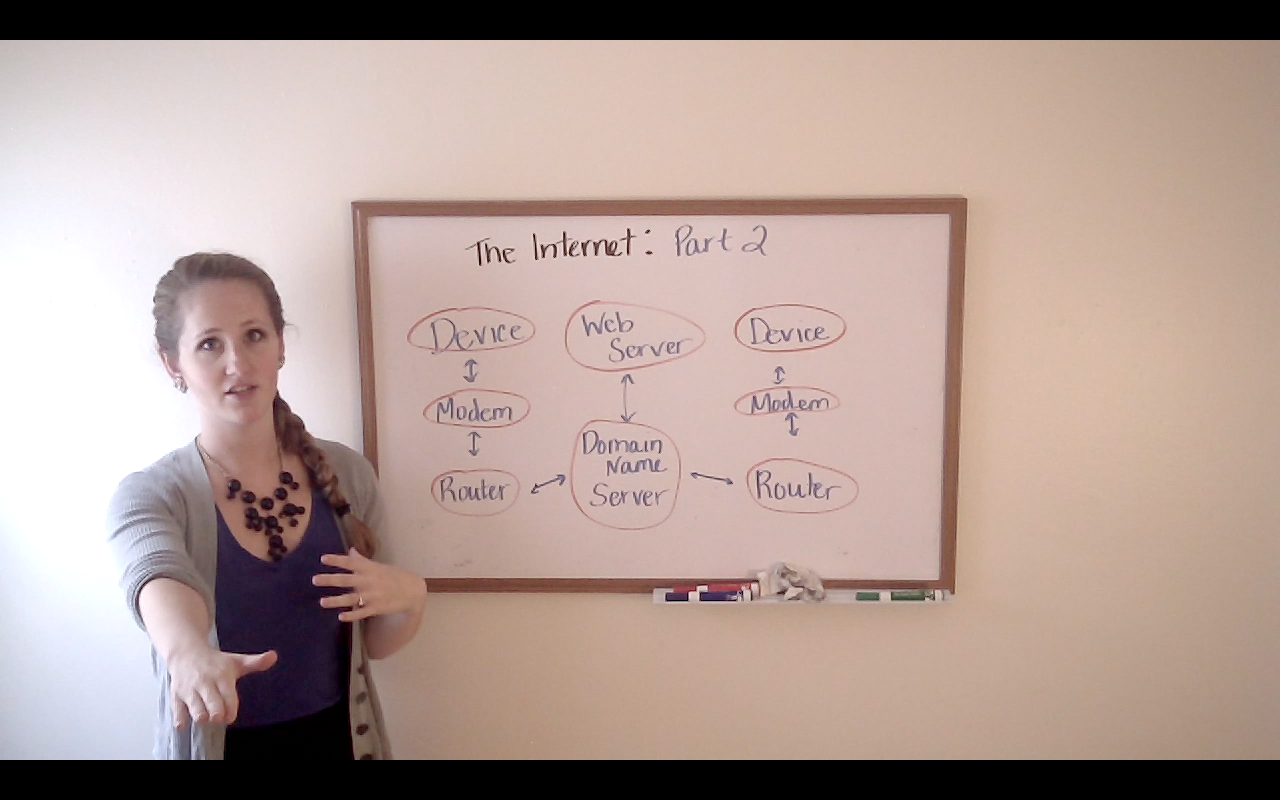 The Internet: Part 2
Device
Modem
Router
Web
Server
Domain
Name
Server
Device
Modem
Router